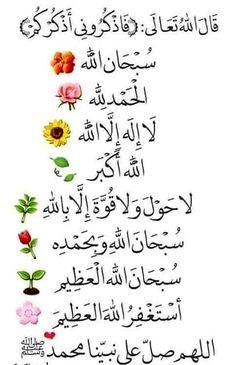 قَالَ اللهُ تَعَالَى: ﴿فَاذْكُرُونِي أَذْكُرْكُمْ﴾
سُبْحَانَ اللهِ
الْحَمْدُ لِلهِ
لَا إِلَهَ إِلَّا اللهُ
اللهُ أَكْبَر
لَا حَوْلَ وَلَا قُوَّةَ إِلَّا بِاللهِ
سُبْحَانَ اللهِ وَبِحَمْدِهِ
سُبْحَانَ اللهِ الْعَظِيمِ
أَسْتَغْفِرُ اللهَ الْعَظِيمَ
اللهم صلّ على نبيّنا محمد ﷺ